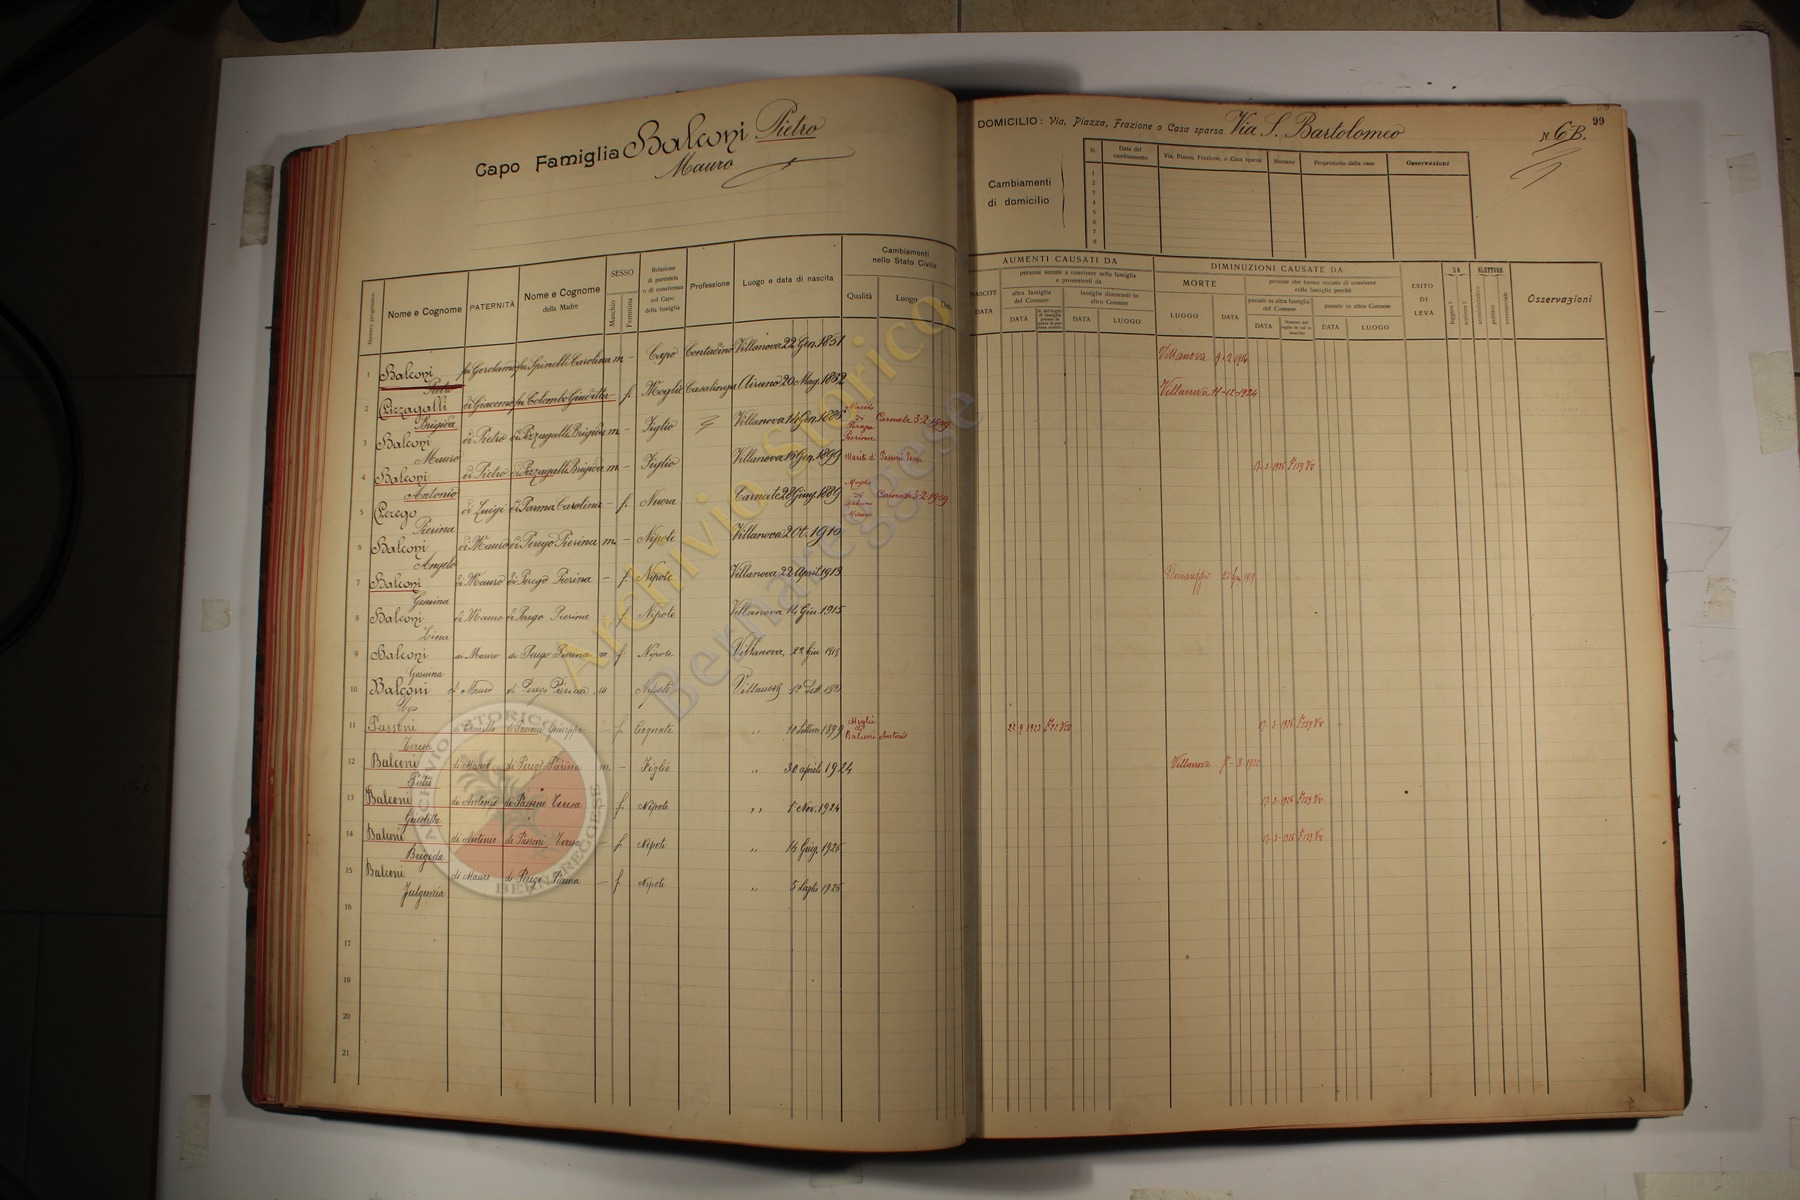 Capo Famiglia Balconi Pietro
Mauro
99
DOMICILIO: Via, Piazza, Frazione o Casa sparsa Via S. Bartolomeo N. 6 B.
Cambiamenti
di domicilio
N. Data del cambiamento Via, Piazza, Frazione, o Casa sparsa Numero Proprietario della casa Osservazioni
1
2
3
4
5
6
7
8
Numero progressivo Nome e Cognome PATERNITÀ Nome e Cognome della Madre SESSO Maschio Femmina Relazione di parentela o di convivenza col Capo della famiglia Professione Luogo e data di nascita Cambiamenti nello Stato Civile Qualità Luogo Data
AUMENTI CAUSATI DA
NASCITE DATA
persone venute a convivere nella famiglia e provenienti da
altra famiglia del Comune
famiglie dimoranti in altro Comune
DATA DATA LUOGO
DIMINUZIONI CAUSATE DA
MORTE LUOGO DATA
persone che hanno cessato di convivere colla famiglia perchè
passate in altra famiglia del Comune
passate in altro Comune
DATA DATA LUOGO
ESITO DI LEVA
SA leggere? scrivere?
ELETTORE amministrativo politico commerciale
Osservazioni
1 Balconi Pietro fu Gerolamo fu Spinelli Carolina m - Capo Contadino Villanova 22 Gen. 1851 Villanova 9-2-1916
2 Pizzagalli Brigida di Giacomo fu Colombo Giuditta - f. Moglie Casalinga Airuno 20 Mag. 1852 Villanova 11-12-1924
3 Balconi Mauro di Pietro di Pizzagalli Brigida m - Figlio Villanova 14 Gen. 1886 Marito di Perego Pierina Carnate 3-2-1909
4 Balconi Antonio di Pietro di Pizzagalli Brigida m - Figlio Villanova 15 Gen. 1899 Marito di Passoni Teresa
5 Perego Pierina di Luigi di Parma Carolina - f. Nuora Carnate 28 Giug. 1889 Moglie di Balconi Mauro Carnate 3-2-1909
6 Balconi Angelo di Mauro di Perego Pierina m - Nipote Villanova 2 Ot. 1910
7 Balconi Gesuina di Mauro di Perego Pierina - f. Nipote Villanova 22 April. 1913 Bernareggio
8 Balconi Lina di Mauro di Perego Pierina f Nipote Villanova 14 Giu. 1915
9 Balconi Gesuina di Mauro di Perego Pierina m f Nipote Villanova 22 Giu
10 Balconi Ugo di Mauro di Perego Pierina m Nipote Villanova 12 Set
11 Passoni Teresa di Camillo di Passoni Giuseppa - f Cognata " 10 Settem 1899 Moglie di Balconi Antonio
12 Balconi Pietro di Mauro di Perego Pierina m. - Figlio " 30 aprile 1924 Villanova
13 Balconi Giuditta di Antonio di Passoni Teresa f. Nipote " 1 Nov. 1924
14 Balconi Brigida di Antonio di Passoni Teresa - f Nipote " 14 Giug. 1925
15 Balconi Fulgenzia di Mauro di Perego Pierina - f Nipote " 5 Luglio 1926
16
17
18
19
20
21
Archivio Storico
Bernareggese
ARCHIVIO STORICO
BERNAREGGESE